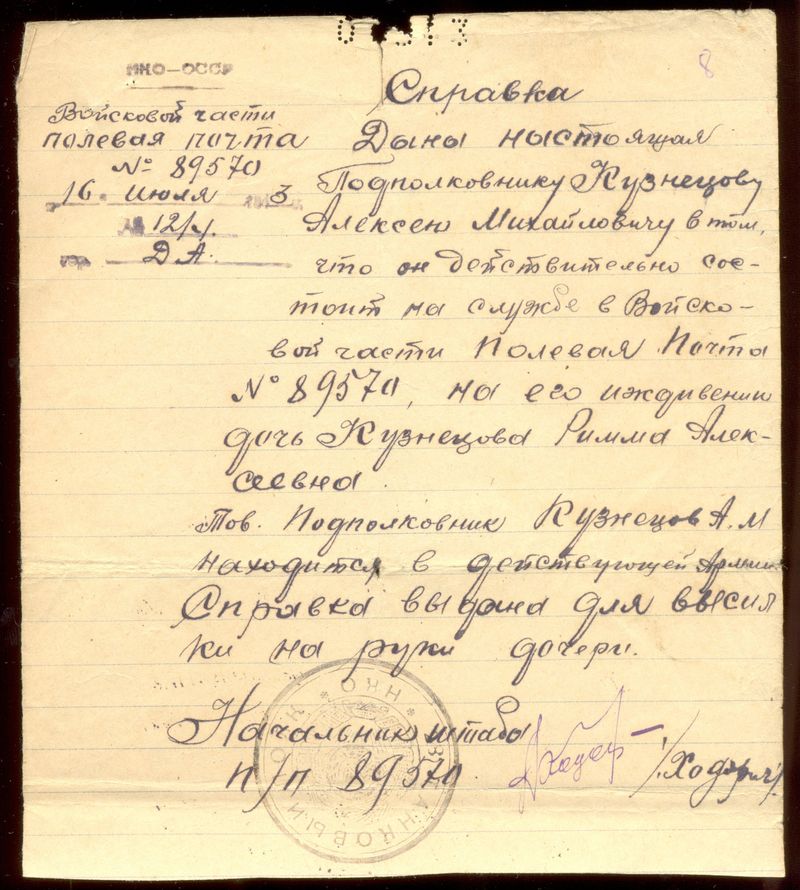 8
НКО—СССР
Справка
Войсковой части
полевая почта
№ 89570
16 июля 3
Дана настоящая
Подполковнику Кузнецову
Алексею Михайловичу в том,
Д А.
что он действительно сос-
тоит на службе в Войско-
вой части Полевая Почта
№ 89570, на его иждивении
дочь Кузнецова Римма Алек-
сеевна.
Тов. Подполковник Кузнецов А.М
находится в действующей Армии
Справка выдана для высил
ки на руки дочери.
Начальник штаба
п/п 89570
НКО